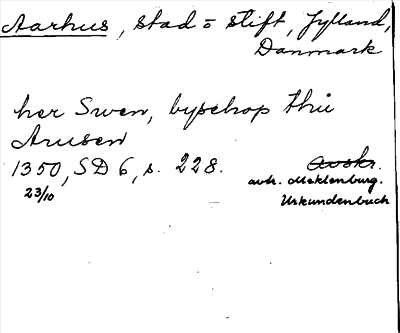 Aarhus, stad o stift, Jylland,
Danmark
her Swen, byschop thu
Arusen
1350, SD 6, s. 228.
23/10
avskr.
avtr. Meklenburg.
Urkundenbuch